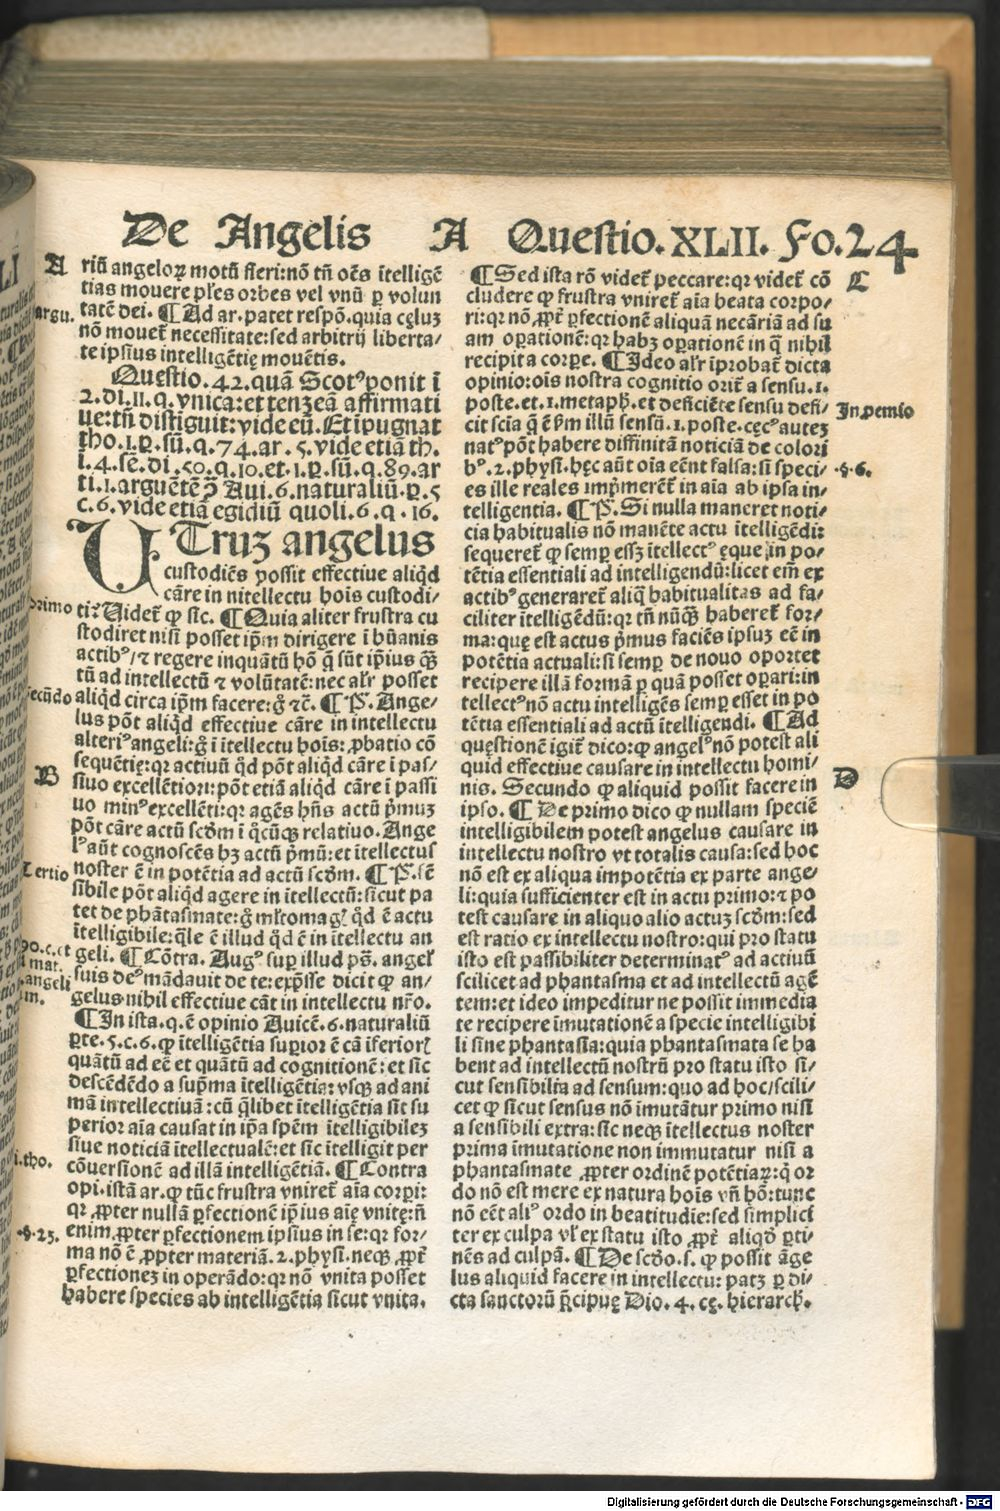 De Angelis A Questio.XLII. Fo.24
A
riū angeloꝝ motū fieri:nō tn̄ oēs ītelligē
tias mouere ples orbes vel vnū ꝑ volun
argu.
tatē dei. ¶Ad ar.patet respō.quia cęluꝫ
nō mouet᷑ necessitate:sed arbitrij liberta/
te ipsius intelligētię mouētis.
Questio.42.quā Scotꝰ ponit ī
2.di.11.q.vnica:et tenꝫ eā affirmati
ue:tn̄ distiguit:vide eū. Et ipugnat
tho.1.p.sū.q.74.ar.5.vide etiā th.
i.4.se.di.50.q.10.et.1.p.sū.q.89.ar
ti.1.arguētē Aui.6.naturaliū.p.5
c.6.vide etiā egidiū quoli.6.q.16.
VTruꝫ angelus
custodiēs possit effectiue aliqd
cāre in nitellectu hois custodi/
primo
ti? Videt᷑ ꝙ sic. ¶Quia aliter frustra cu
stodiret nisi posset ip̄m dirigere ī hūanis
actibꝰ/⁊ regere inquātū hō q̄ sūt ip̄ius
tū ad intellectū ⁊ volūtatē:nec alr̄ posset
secūdo
aliqd circa ip̄m facere:g̊ ⁊c̄. ¶P̄. Ange/
lus pōt aliqd effectiue cāre in intellectu
alteriꝰ angeli:g̊ ī itellectu hois:ꝓbatio cō
sequētię:qr actiuū qd pōt aliqd cāre ī pas/
B
siuo excellētiori:pōt etiā aliqd cāre ī passi
uo minꝰ excellēti:qr agēs hn̄s actū pͥmuꝫ
pōt cāre actū scdm ī relatiuo. Ange
lꝰ aūt cognoscēs hꝫ actū pͥmū:et ītellectus
Tertio
noster ē in potētia ad actū scdm. ¶P̄.sē
sibile pōt aliqd agere in itellectū:sicut pa
tet de phātasmate:g̊ qd ē actu
ītelligibile:q̄le ē illud qd ē in itellectu an
geli. ¶Cōtra. Augꝰ sup illud pͣs. angel
suis deꝰ mādauit de te:exp̄sse dicit ꝙ an/
angeli
gelus nihil effectiue cāt in intellectu nr̄o.
¶In ista.q.ē opinio Auicē.6.naturaliū
ꝑte.5.c.6.ꝙ ītelligētia supior ē cā īferior
quātū ad eē et quātū ad cognitionē:et sic
descēdēdo a supͥma itelligētia:vsqꝫ ad ani
mā intellectiuā:cū qͥlibet ītelligētia sit su
perior aīa causat in ip̄a spēm ītelligibileꝫ
siue noticiā ītellectualē:et sic ītelligit per
i.tho.
cōuersionē ad illā intelligētiā. ¶Contra
opi.istā ar.ꝙ tūc frustra vniret᷑ aīa corpi:
qr ꝓpter nullā ꝑfectionē ip̄ius aīę vnitę:n̄
.§.25.
enim ꝓpter ꝑfectionem ipsius in se:qr for/
ma nō ē ꝓpter materiā.2.physi.neqꝫ ꝓpt̄
ꝑfectioneꝫ in operādo:qr nō vnita posset
habere species ab intelligētia sicut vnita.
¶Sed ista rō videt᷑ peccare:qr videt᷑ cō
C
cludere ꝙ frustra vniret᷑ aīa beata corpo/
ri:qr nō ꝓpt̄ ꝑfectionē aliquā necāriā ad su
am oꝑationē:qr habꝫ oꝑationē in q̄ nihil
recipit a corꝑe. ¶Ideo alr̄ iprobat᷑ dicta
opinio:ois nostra cognitio orit᷑ a sensu.1.
poste.et.1.metaph.et deficiēte sensu defi/
In ꝓemio
cit scia q̄ ē illū sensū.1.poste.cęcꝰ auteꝫ
natꝰ pōt habere diffinitā noticiā de colori
bꝰ.2.physi.hęc aūt oīa eēnt falsa:si speci/
.§.6.
es ille reales impͥmerēt᷑ in aīa ab ipsa in/
telligentia. ¶P̄. Si nulla maneret noti/
cia habitualis nō manēte actu itelligēdi:
sequeret᷑ ꝙ semꝑ essꝫ ītellectꝰ ęque in po/
tētia essentiali ad intelligendū:licet em̄ ex
actibꝰ generaret᷑ aliq̄ habitualitas ad fa/
ciliter ītelligēdū:qr tn̄ nūq̄ꝫ haberet᷑ for/
ma:quę est actus pͥmus faciēs ipsuꝫ eē in
potētia actuali:si semꝑ de nouo oportet
recipere illā formā ꝑ quā posset oꝑari:in
tellectꝰ nō actu intelligēs semꝑ esset in po
tētia essentiali ad actū ītelligendi. ¶Ad
quęstionē igit᷑ dico:ꝙ angelꝰ nō potest ali
quid effectiue causare in intellectu homi/
D
nis. Secundo ꝙ aliquid possit facere in
ipso. ¶De primo dico ꝙ nullam speciē
intelligibilem potest angelus causare in
intellectu nostro vt totalis causa:sed hoc
nō est ex aliqua impotētia ex parte ange/
li:quia sufficienter est in actu primo:⁊ po
test causare in aliquo alio actuꝫ scdm:sed
est ratio ex intellectu nostro:qui pro statu
isto est passibiliter determinatꝰ ad actiuū
scilicet ad phantasma et ad intellectū agē
tem:et ideo impeditur ne possit immedia
te recipere īmutationē a specie intelligibi
li sine phantasia:quia phantasmata se ha
bent ad intellectū nostrū pro statu isto si/
cut sensibilia ad sensum:quo ad hoc/scili/
cet ꝙ sicut sensus nō imutātur primo nisi
a sensibili extra:sic neqꝫ ītellectus noster
prima īmutatione non immutatur nisi a
phantasmate ꝓpter ordinē potētiaꝝ:qͥ or
do nō est mere ex natura hois vn̄ hō:tunc
nō eēt aliꝰ ordo in beatitudie:sed simplici
ter ex culpa vl̓ ex statu isto ꝓpt̄ aliqd ꝑti/
nēs ad culpā. ¶De scdo.s.ꝙ possit āge
lus aliquid facere in intellectu:patꝫ ꝑ di/
cta sanctorū p̄cipuę Dio.4.cę.hierarch.
Digitalisierung gefördert durch die Deutsche Forschungsgemeinschaft - DFG